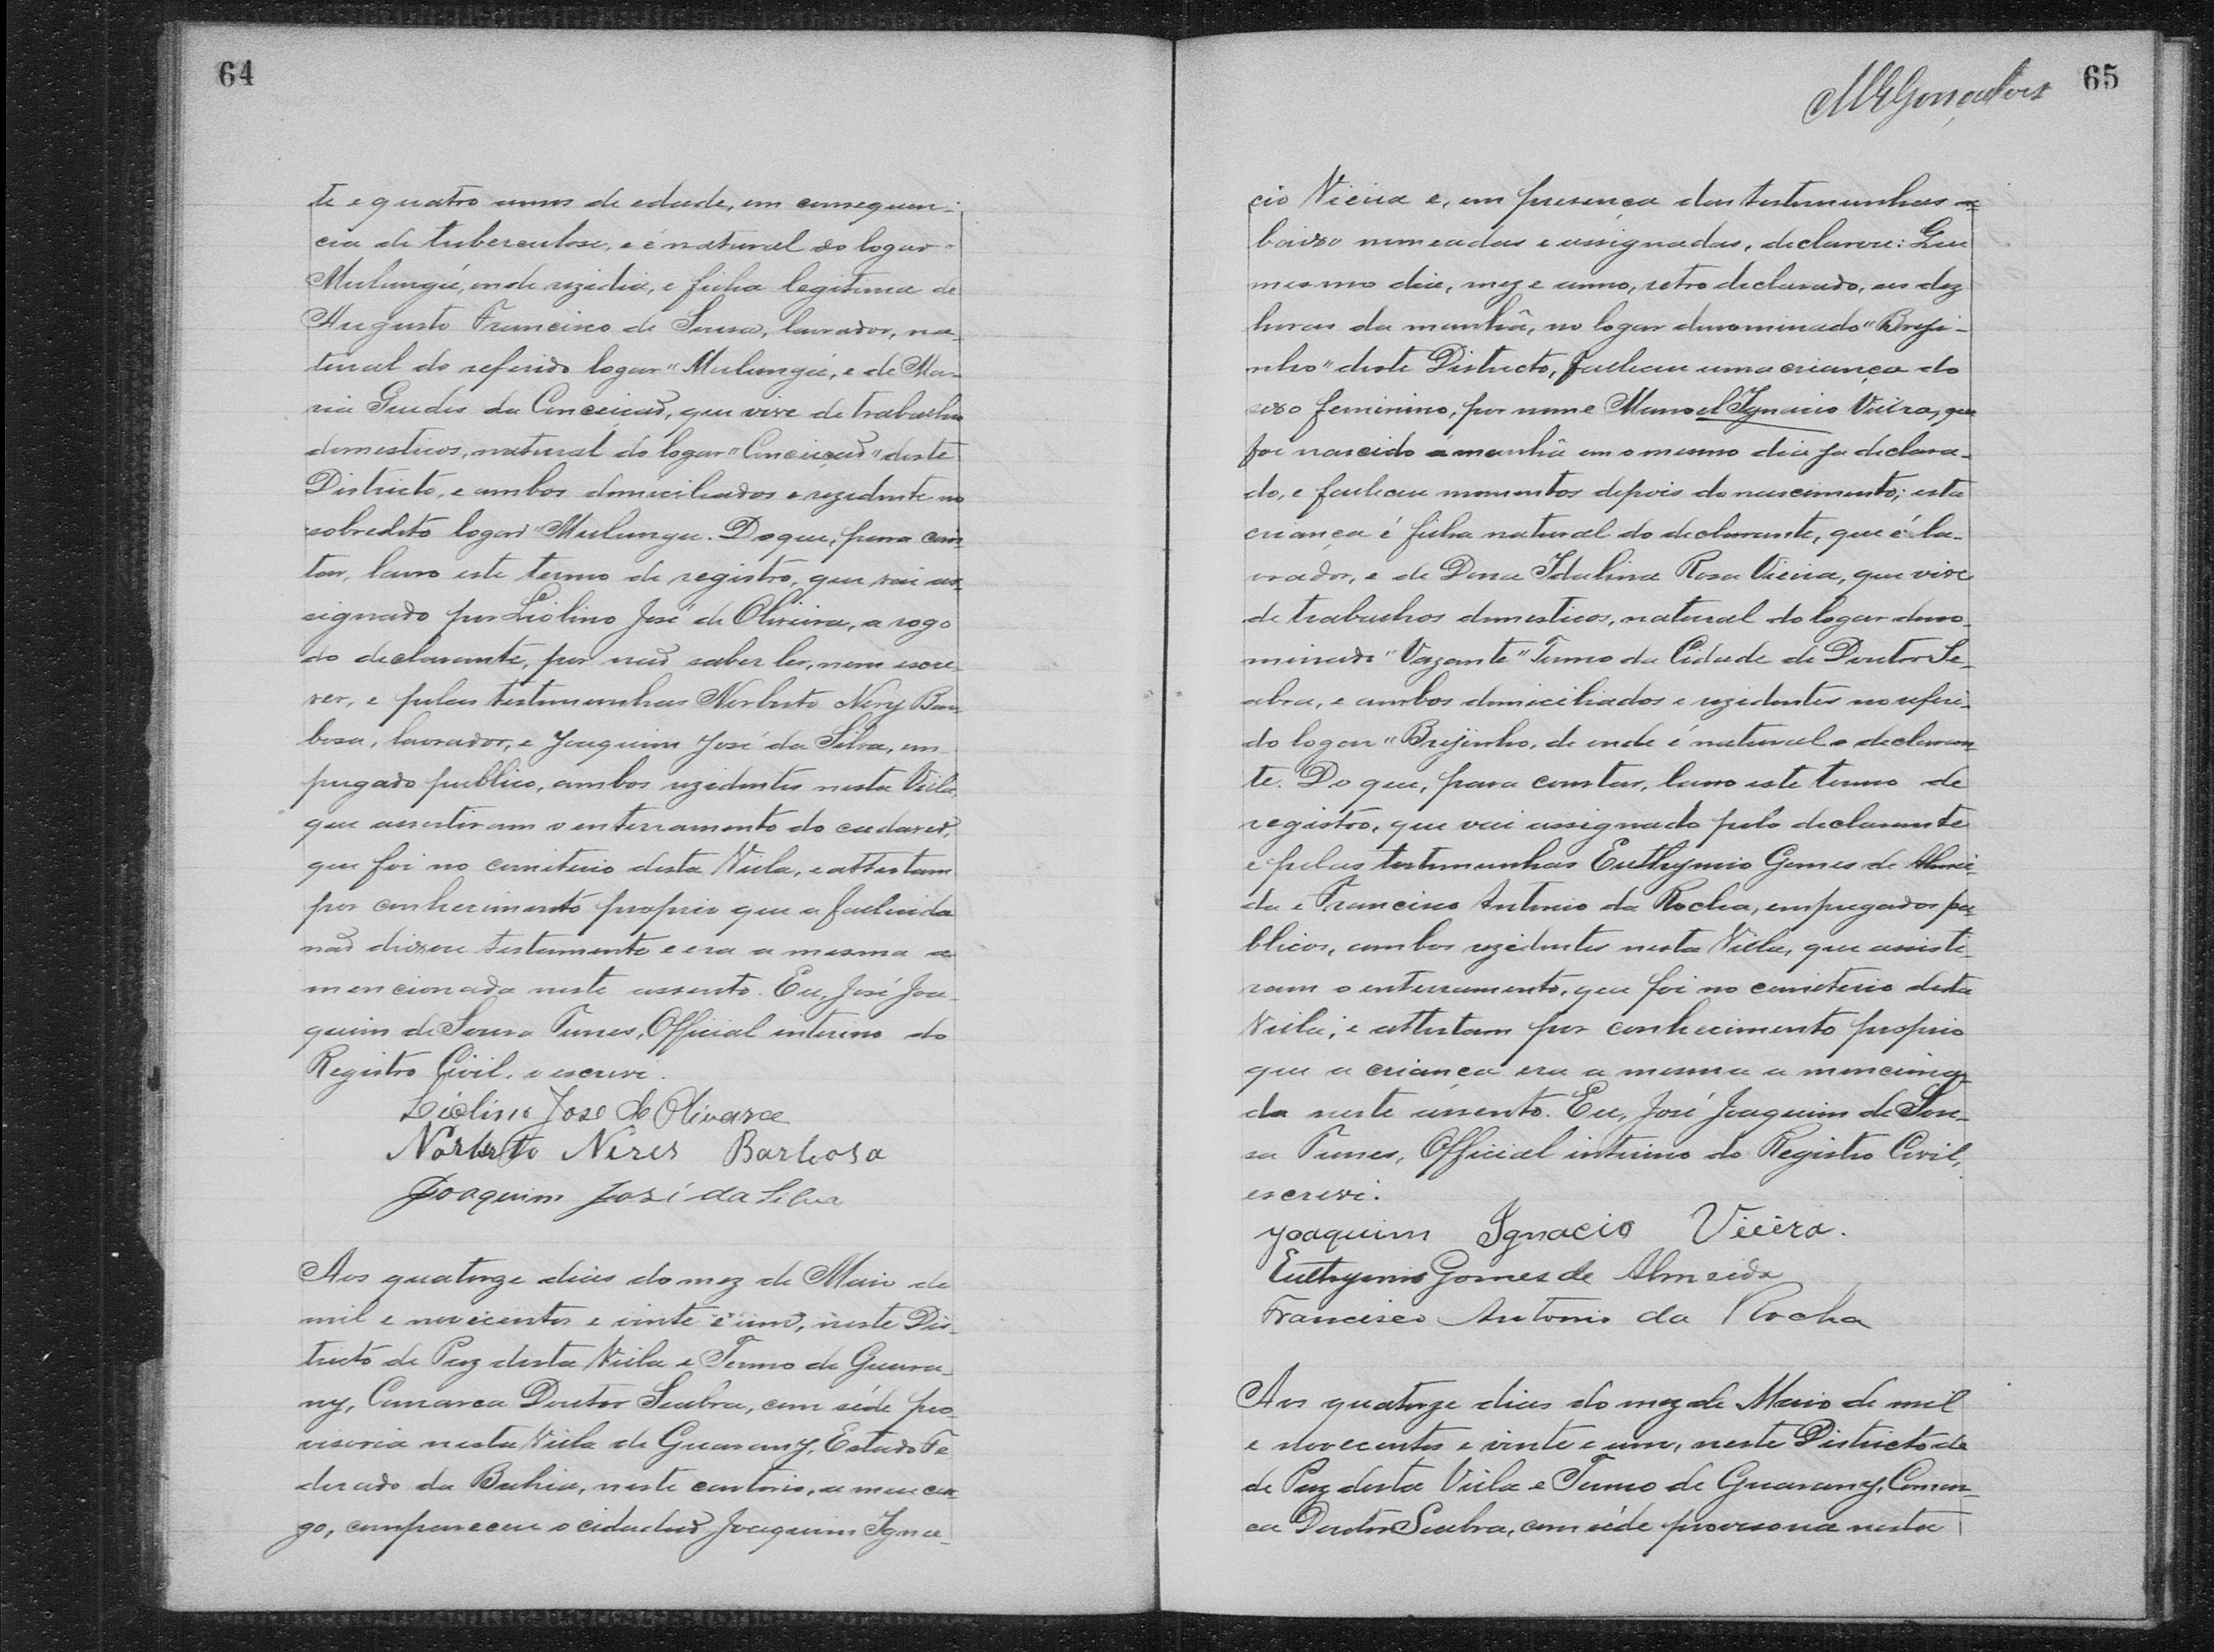 64
te e quatro annos de edade, em consequen-
cia de tuberculose, e é natural do logar "
Mulungú, onde rezidia, e filha legitima de
Augusto Francisco de Sousa, lavrador, na-
tural do referido logar "Mulungú, e de Ma-
ria Guedes da Conceição, que vive de trabalhos
domesticos, natural do logar "Conceição" deste
Districto, e ambos domiciliados e rezidente no
sobredito logar "Mulungu. Do que, para cons-
tar, lavro este termo de registro, que vai as-
signado por Liolino José de Oliveira, a rogo
do declarante, por não saber ler, nem escre-
ver, e pelas testemunhas Norberto Nery Bar-
bosa, lavrador, e Joaquim José da Silva, em
pregado publico, ambos rezidentes nesta Villa,
que assistiram o enterramento do cadaver,
que foi no cemiterio desta Villa, e attestam
por conhecimento proprio que a fallecida
não deixou testamento e era a mesma a
mencionada neste assento. Eu, José Joa-
quim de Sousa Tunes, Official interino do
Registro Civil, o escrevi.
Liolino Jose de Olivara
Norberto Neres Barbosa
Joaquim José da Silva
Aos quatorze dias do mez de Maio de
mil e novecentos e vinte e um, neste Dis-
tricto de Paz desta Villa e Termo de Guara-
ny, Comarca Doutor Seabra, com séde pro-
visoria nesta Villa de Guarany, Estado Fe
derado da Bahia, neste cartorio, a meu car-
go, compareceu o cidadão Joaquim Igna-
65
MGGonçalves
cio Vieira e, em presença das testemunhas a-
baixo nomeadas e assignadas, declarou: Que
mesmo dia, mez e anno, retro declarado, as dez
horas da manhã, no logar denominado "Breji-
nho" deste Districto, falleceu uma criança do
sexo feminino, por nome Manoel Ignacio Vieira, que
foi nascido á manhã em o mesmo dia ja declara-
do, e falleceu momentos depois do nascimento; esta
criança é filha natural do declarante, que é la-
vrador, e de Dona Idalina Rosa Vieira, que vive
de trabalhos domesticos, natural do logar deno-
minado "Vazante" Termo da Cidade de Doutor Se-
abra, e ambos domiciliados e rezidentes no referi-
do logar "Brejinho, de onde é natural o declaran-
te. Do que, para constar, lavro este termo de
registro, que vai assignado pelo declarante
e pelas testemunhas Euthymio Gomes de Almei-
da e Francisco Antonio da Rocha, empregados pu-
blicos, ambos rezidentes nesta Villa, que assisti-
ram o enterramento, que foi no cemiterio desta
Villa; e attestam por conhecimento proprio
que a criança era a mesma a menciona-
da neste assento. Eu, José Joaquim de Sou-
sa Tunes, Official interino do Registro Civil,
escrevi.
Joaquim Ignacio Vieira.
Euthymio Gomes de Almeida
Francisco Antonio da Rocha
Aos quatorze dias do mez de Maio de mil
e novecentos e vinte e um, neste Districto de
de Paz desta Villa e Termo de Guarany, Comar-
ca Doutor Seabra, com séde provisoria nesta